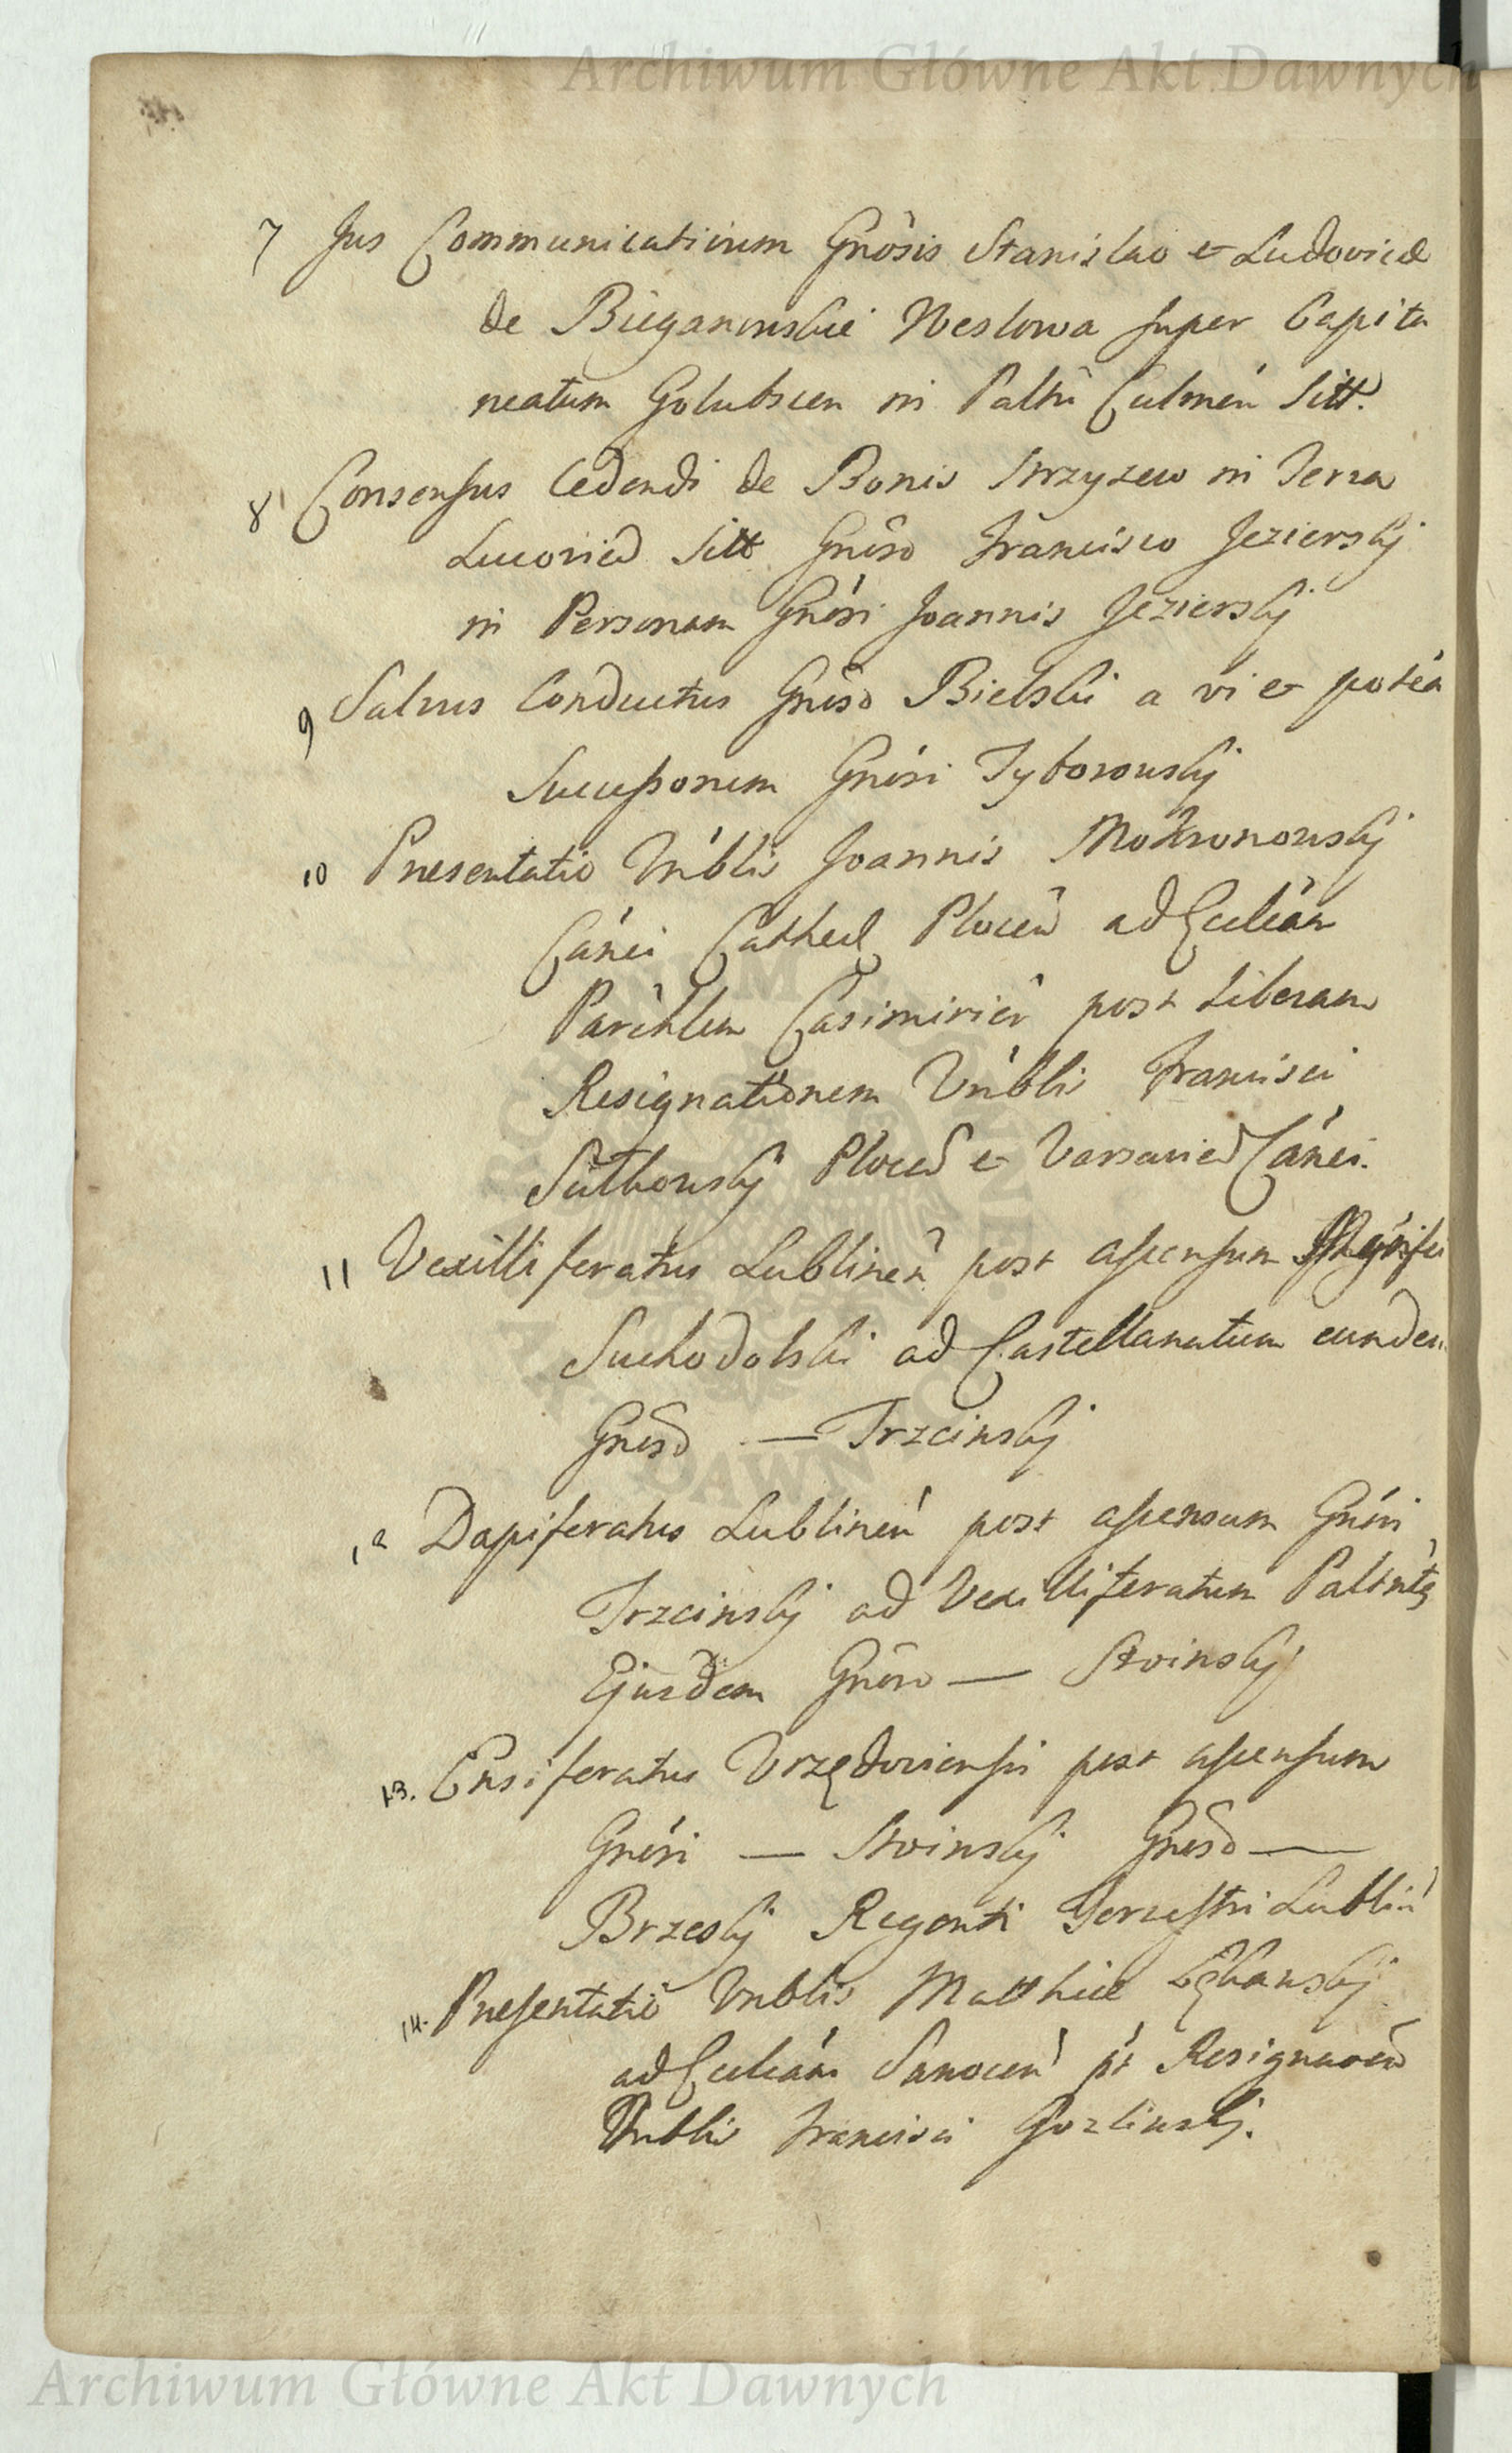 Archiwum Główne Akt Dawnych
7 Jus Communicativum Gnosis Stanislao et Ludovicæ
de Bieganowskie Weslowa super Capita
neatum Golubscen in Paltu Culmen Sitt.
8 Consensus Cedendi de Bonis Strzyzew in Terra
Lucovien Sitt Gnoso Francisco Jezierskj
in Personam Gnosi Joannis Jezierskj
9 Salvus Conductus Gnoso Bielski a vi et poten
Successorum Gnosi Tyborowskj
10 Præsentatio Vnblis Joannis Mokronowskj
Canci Cathed Plocen ad Eccliam
Parchlem Casimirien post Liberam
Resignationem Vnblis Francisci
Plocen et Varsavien Canci.
11 Vexilliferatus Lublinen post ascensum Mgnifci
Suchodolski ad Castellanatum eunden
Gnoso — Trzcinskj
12 Dapiferatus Lublinen post ascensum Gnosi
Trzcinskj ad Vexilliferatum Paltnts
Ejusdem Gnoso — Stoinskj
13. Ensiferatus Vrzędoviensis post ascensum
Gnosi — Stoinskj Gnoso —
Brzeskj Regenti Terrestri Lublin
14. Præsentatio Vnblis Matthiæ
ad Eccliam Sanocen pt Resignaoem
Vnblis Francisci Gozlinskj.
Archiwum Główne Akt Dawnych